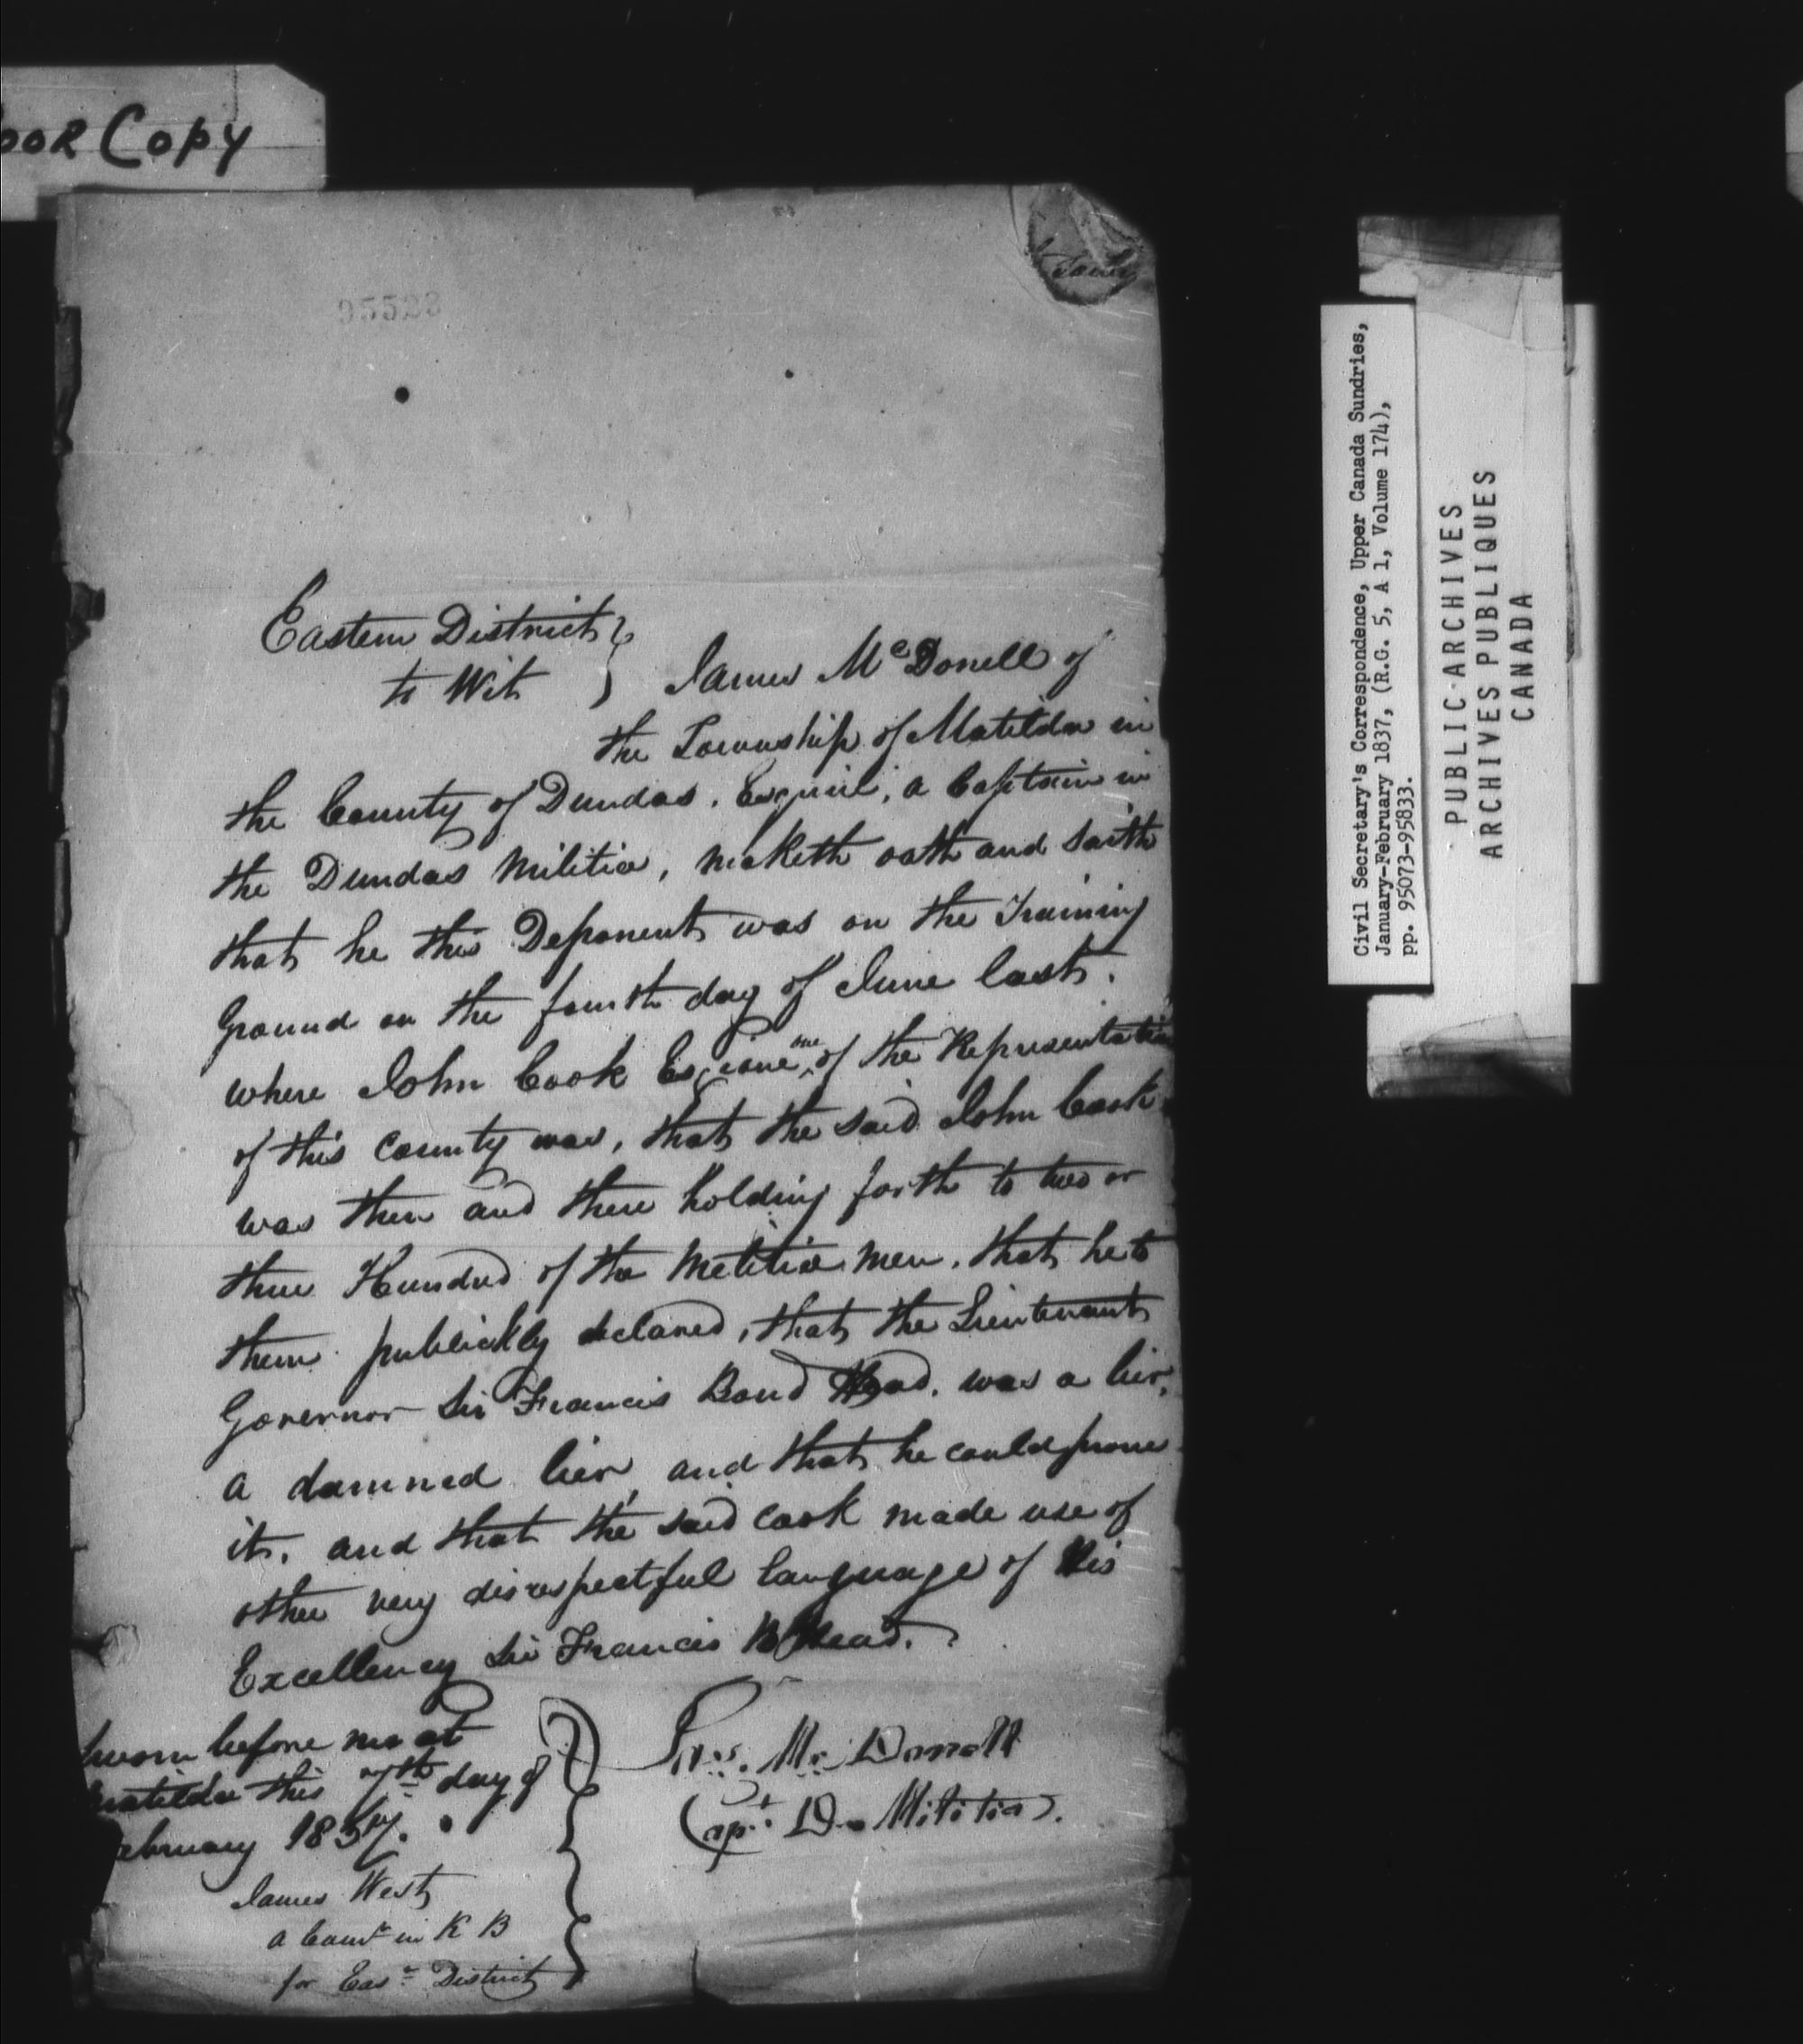 OOR COPY
95523
Eastern District }
to Wit } James McDonell of
the Township of Matilda in
the County of Dundas, Esquire, a Captain in
the Dundas Militia, maketh oath and saith
that he this Deponent was on the Training
Ground on the fourth day of June last.
where John Cook Esquire one of the Representative
of this County was, that the said John Cook
was then and there holding forth to two or
three Hundred of the Militia men, that he to
them publickly declared, that the Lieutenant
Governor Sir Francis Bond Head, was a lier,
a damned lier, and that he could prove
it. and that the said Cook made use of
other very disrespectful language of His
Excellency Sir Francis B Head.
Sworn before me at
Matilda this 7th day of
February 1837.
James West
a Comr in K B
for Easn District
Jas. Mc Donell
Capt D. Militia
Civil Secretary's Correspondence, Upper Canada Sundries,
January-February 1837, (R.G. 5, A 1, Volume 174),
pp. 95073-95833.
PUBLIC ARCHIVES
ARCHIVES PUBLIQUES
CANADA